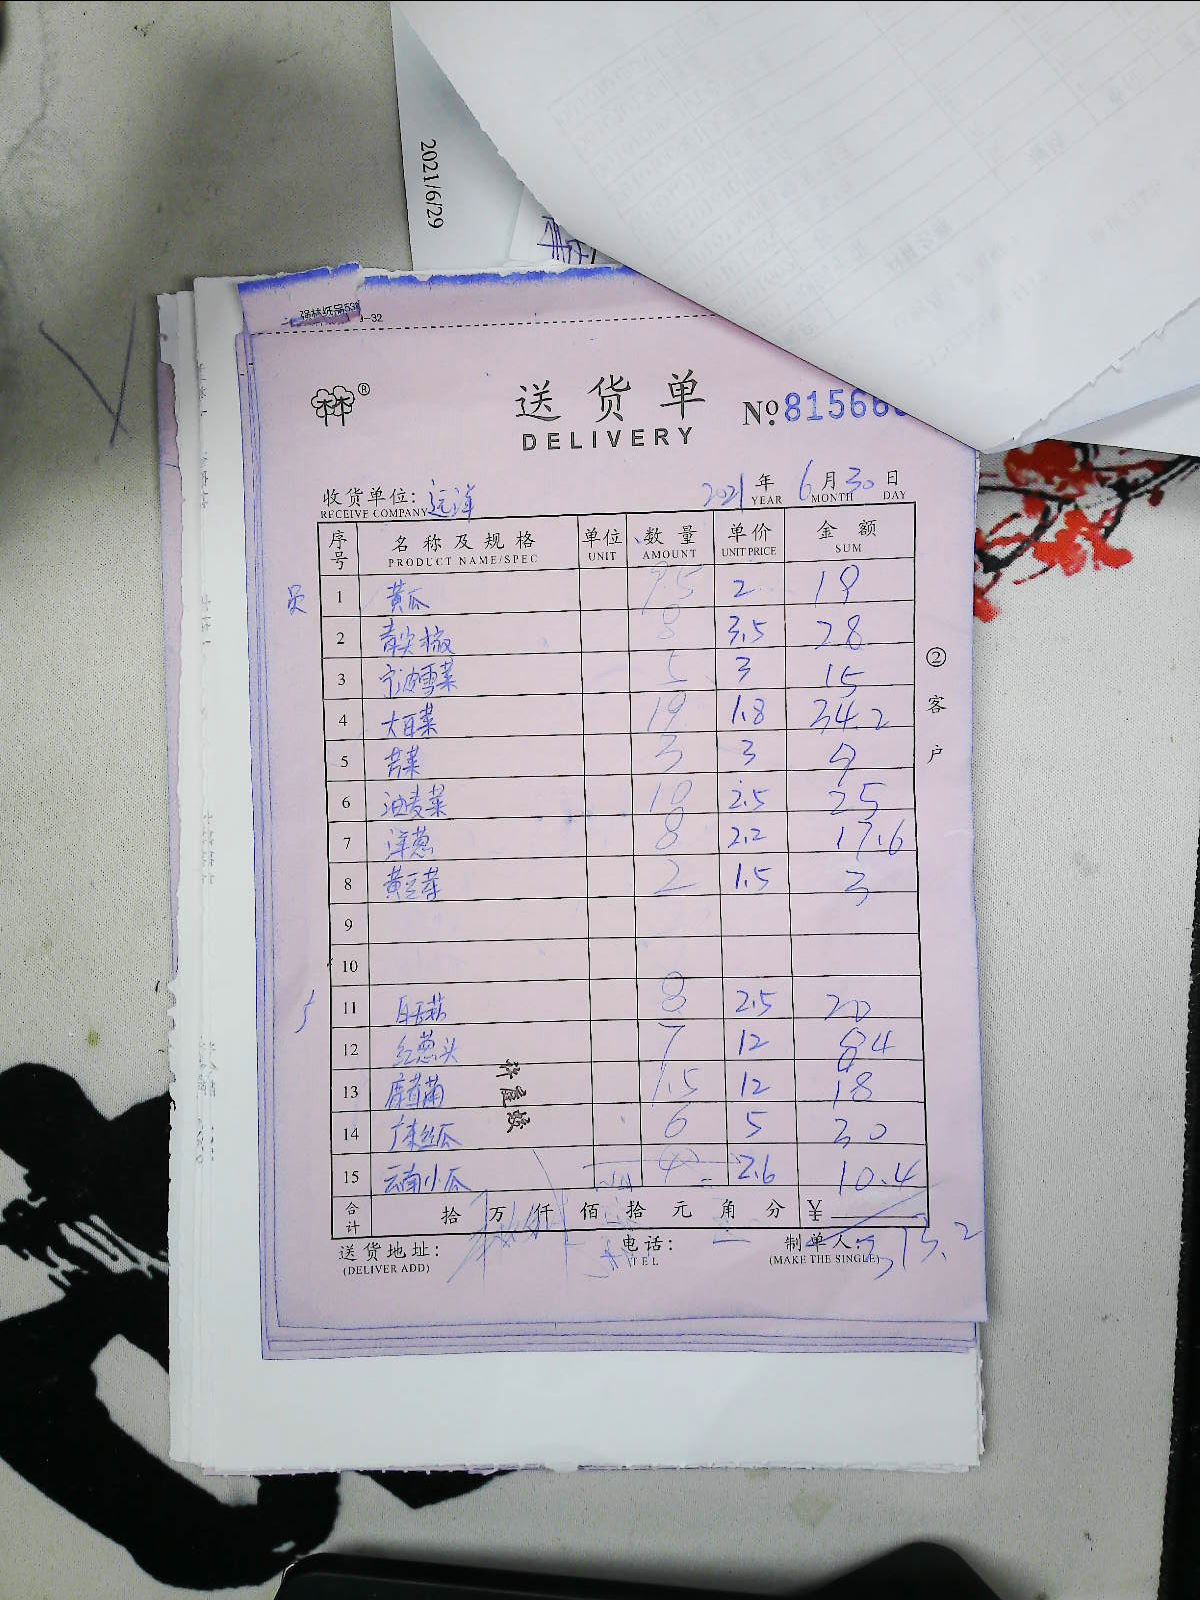 2021/6/29
强林纸品538-32
林®
送货单 №815668
DELIVERY
收货单位: 远洋 2021 年 6 月 30 日
RECEIVE COMPANY YEAR MONTH DAY
序号 名称及规格 单位 数量 单价 金额
PRODUCT NAME/SPEC UNIT AMOUNT UNIT PRICE SUM
员 1 黄瓜 9.5 2 19
2 青尖椒 8 3.5 28
3 宁波雪菜 5 3 15
4 大白菜 19 1.8 34.2
5 苦菜 3 3 9
6 油麦菜 10 2.5 25
7 洋葱 8 2.2 17.6
8 黄豆芽 2 1.5 3
9
10
11 8 2.5 20
12 红葱头 7 12 84
13 1.5 12 18
14 广东丝瓜 6 5 30
15 云南小瓜 4 2.6 10.4
合计 拾 万 仟 佰 拾 元 角 分 ¥
313.2
送货地址: 电话: 制单人:
(DELIVER ADD) TEL (MAKE THE SINGLE)
②客户